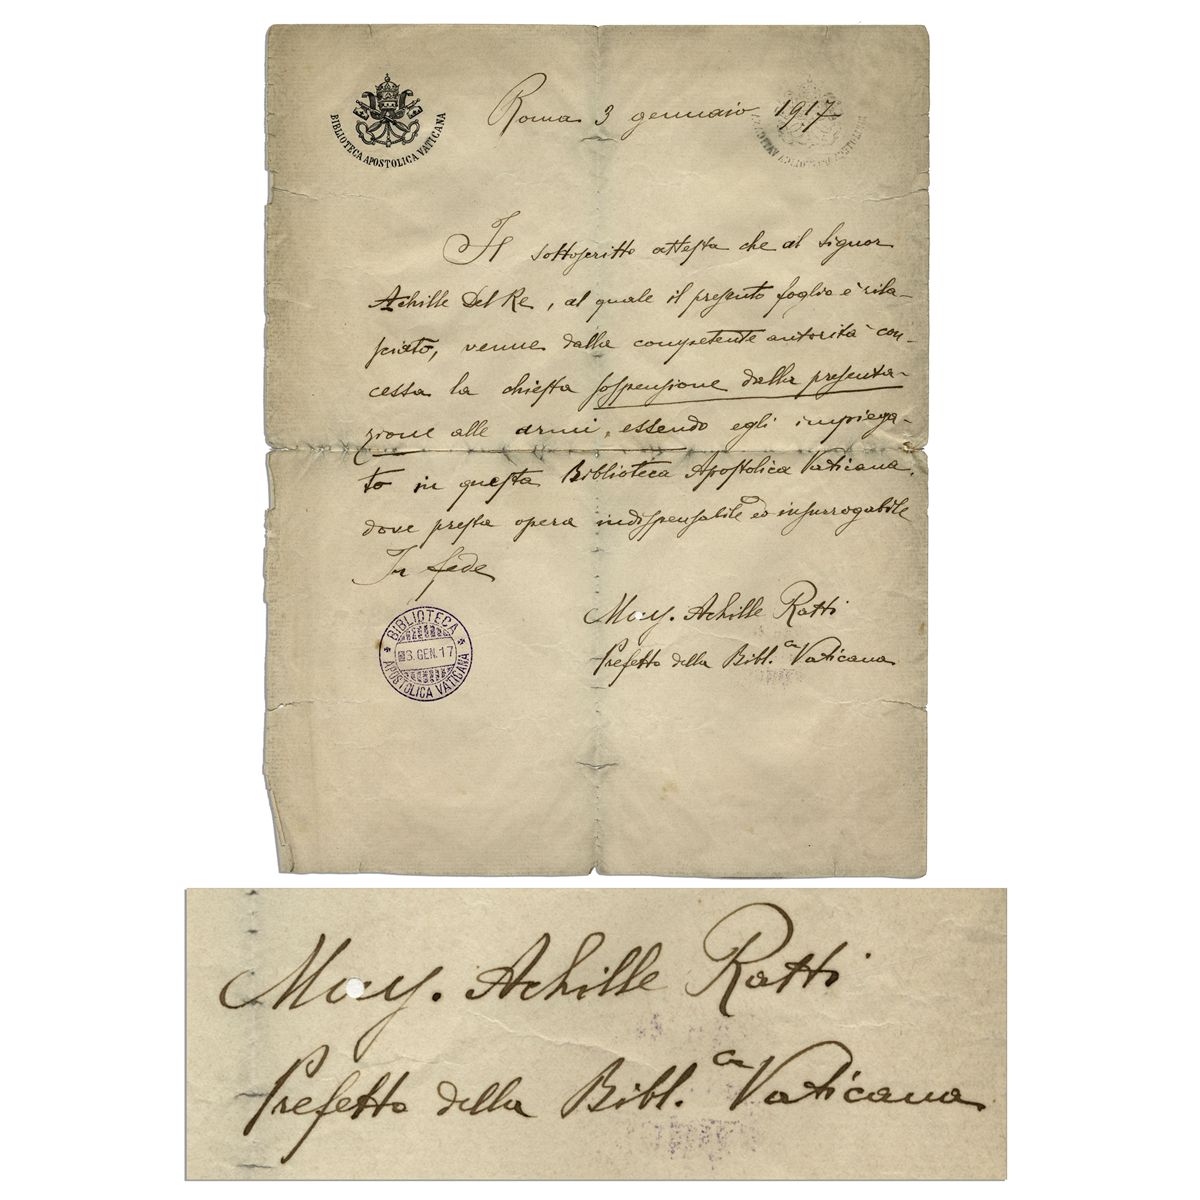 BIBLIOTECA APOSTOLICA VATICANA
Roma 3 gennaio 1917
Il sottoscritto attesta che al Signor
Achille Del Re, al quale il presente foglio è rila-
sciato, venne dalla competente autorità con-
cessa la chiesta sospensione dalla presenta-
zione alle armi, essendo egli impiega-
to in questa Biblioteca Apostolica Vaticana
dove presta opera indispensabile ed insurrogabile
In fede
Mons. Achille Ratti
Prefetto della Bibl.ca Vaticana
BIBLIOTECA
3. GEN. 17
APOSTOLICA VATICANA
Mons. Achille Ratti
Prefetto della Bibl.ca Vaticana